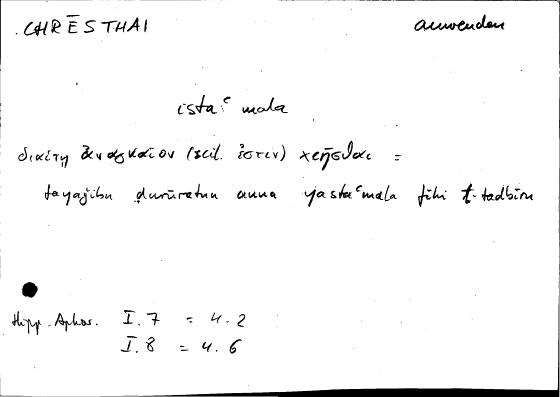 CHRĒSTHAI anwenden
istaʿmala
διαίτῃ ἀναγκαῖον (scil. ἐστιν) χρῆσθαι =
fa-yaǧibu ḍarūratan anna yastaʿmala fīhi t-tadbīru
Hipp. Aphor. I.7 = 4.2
I.8 = 4.6